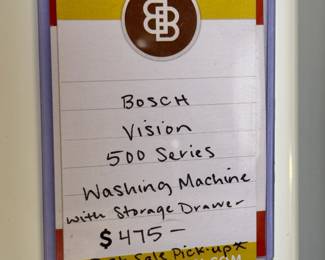 BOSCH
Vision
500 Series
Washing Machine
with Storage Drawer
$475-
Sale Pick-up*
.COM